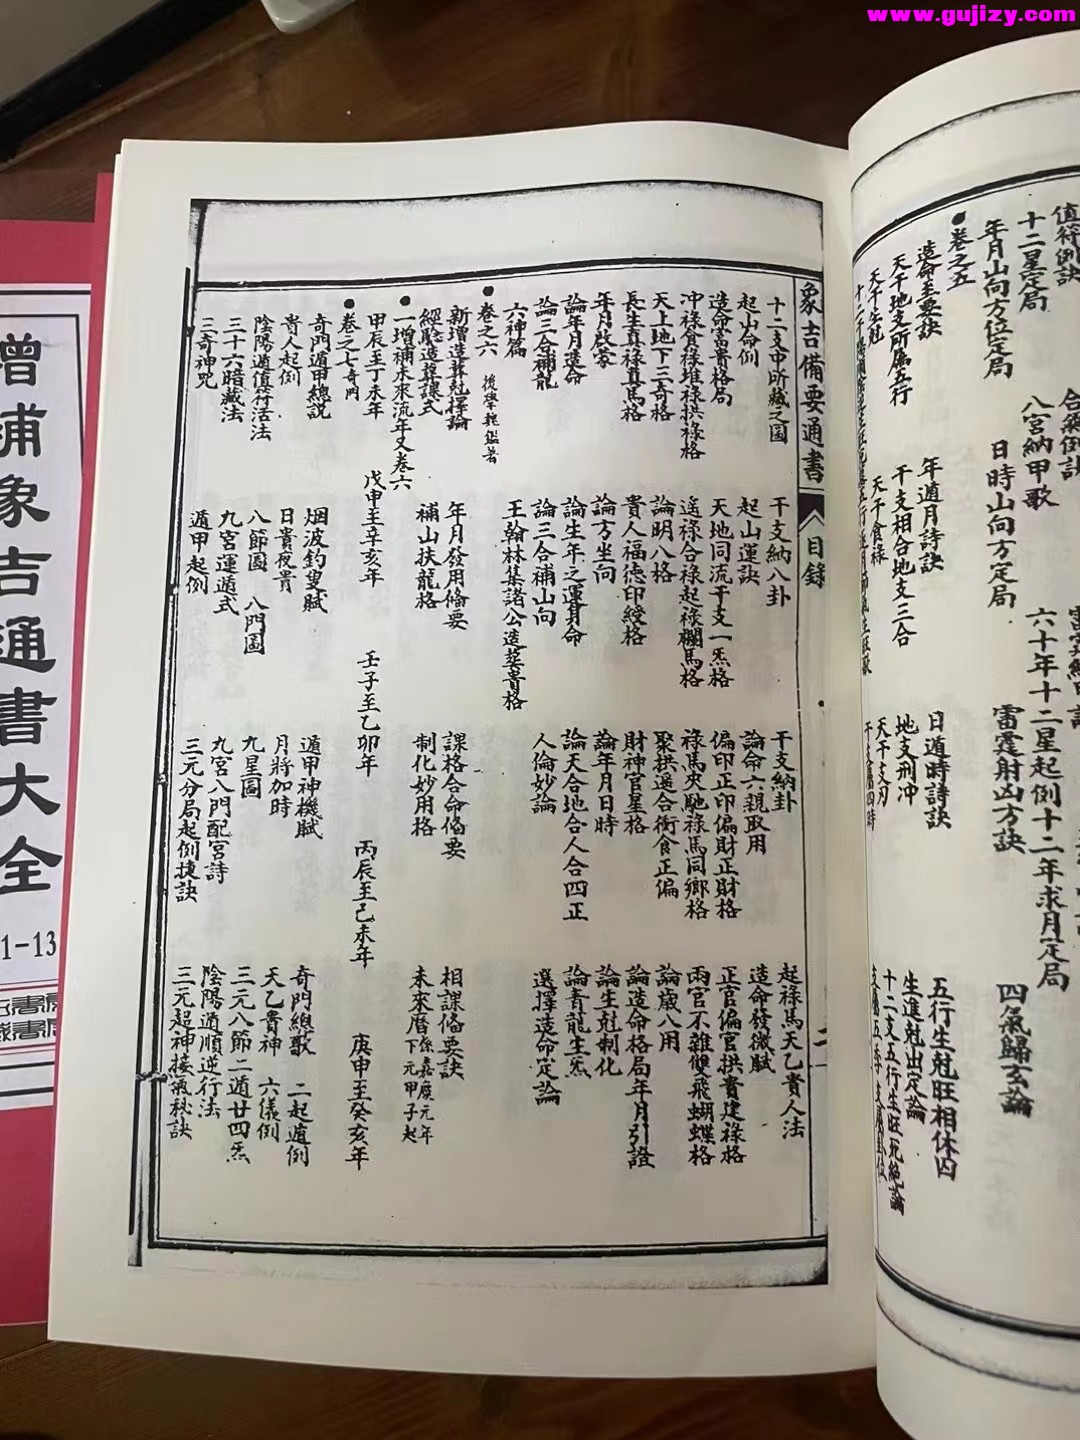 www.gujizy.com
增補象吉通書大全
1-13
值符例訣
合氣例訣
十二星定局
八宮納甲歌
六十年十二星起例十二年求月定局
年月山向方位定局
日時山向方定局
雷霆射凶方訣
四氣歸玄論
●卷之五
造命主要訣
年遁月詩訣
日遁時詩訣
五行生尅旺相休囚
天干地支所屬五行
干支相合地支三合
地支刑冲
生進尅出定論
天干生尅
天干食祿
天干支刃
十二支五行生旺死絕論
象吉備要通書
目錄
二
十二支中所藏之圖
干支納八卦
干支納卦
起祿馬天乙貴人法
起山命例
起山運訣
論命六親取用
造命發微賦
造命富貴格局
天地同流干支一炁格
偏印正印偏財正財格
正官偏官拱貴建祿格
冲祿食祿堆祿拱祿格
遙祿合祿起祿欄馬格
祿馬夾馳祿馬同鄉格
兩官不雜雙飛蝴蝶格
天上地下三奇格
論明八格
聚拱遥合衝食正偏
論歲八用
長生真祿真馬格
貴人福德印綬格
財神官星格
論造命格局年月引證
年月啟蒙
論方坐向
論年月日時
論生尅制化
論年月造命
論生年之運身命
論天合地合人合四正
論青龍生炁
論三合補龍
論三合補山向
人倫妙論
選擇造命定論
六神篇
王翰林集諸公造葬貴格
●卷之六 後學魏鑑著
新增造葬尅擇論
年月發用俻要
課格合命俻要
相課俻要訣
經驗造葬課式
補山扶龍格
制化妙用格
未來曆係嘉慶元年下元甲子起
●一增補未來流年又卷六
甲辰至丁未年
戊申至辛亥年
壬子至乙卯年
丙辰至己未年
庚申至癸亥年
●卷之七奇門
奇門遁甲總説
烟波釣叟賦
遁甲神機賦
奇門總歌
二起遁例
貴人起例
日貴夜貴
月將加時
天乙貴神
六儀例
陰陽遁值符活法
八節圖
八門圖
九星圖
三元八節二遁廿四炁
三十六暗藏法
九宮運遁式
九宮八門配宮詩
陰陽遁順逆行法
三奇神咒
遁甲起例
三元分局起例捷訣
三元超神接氣秘訣